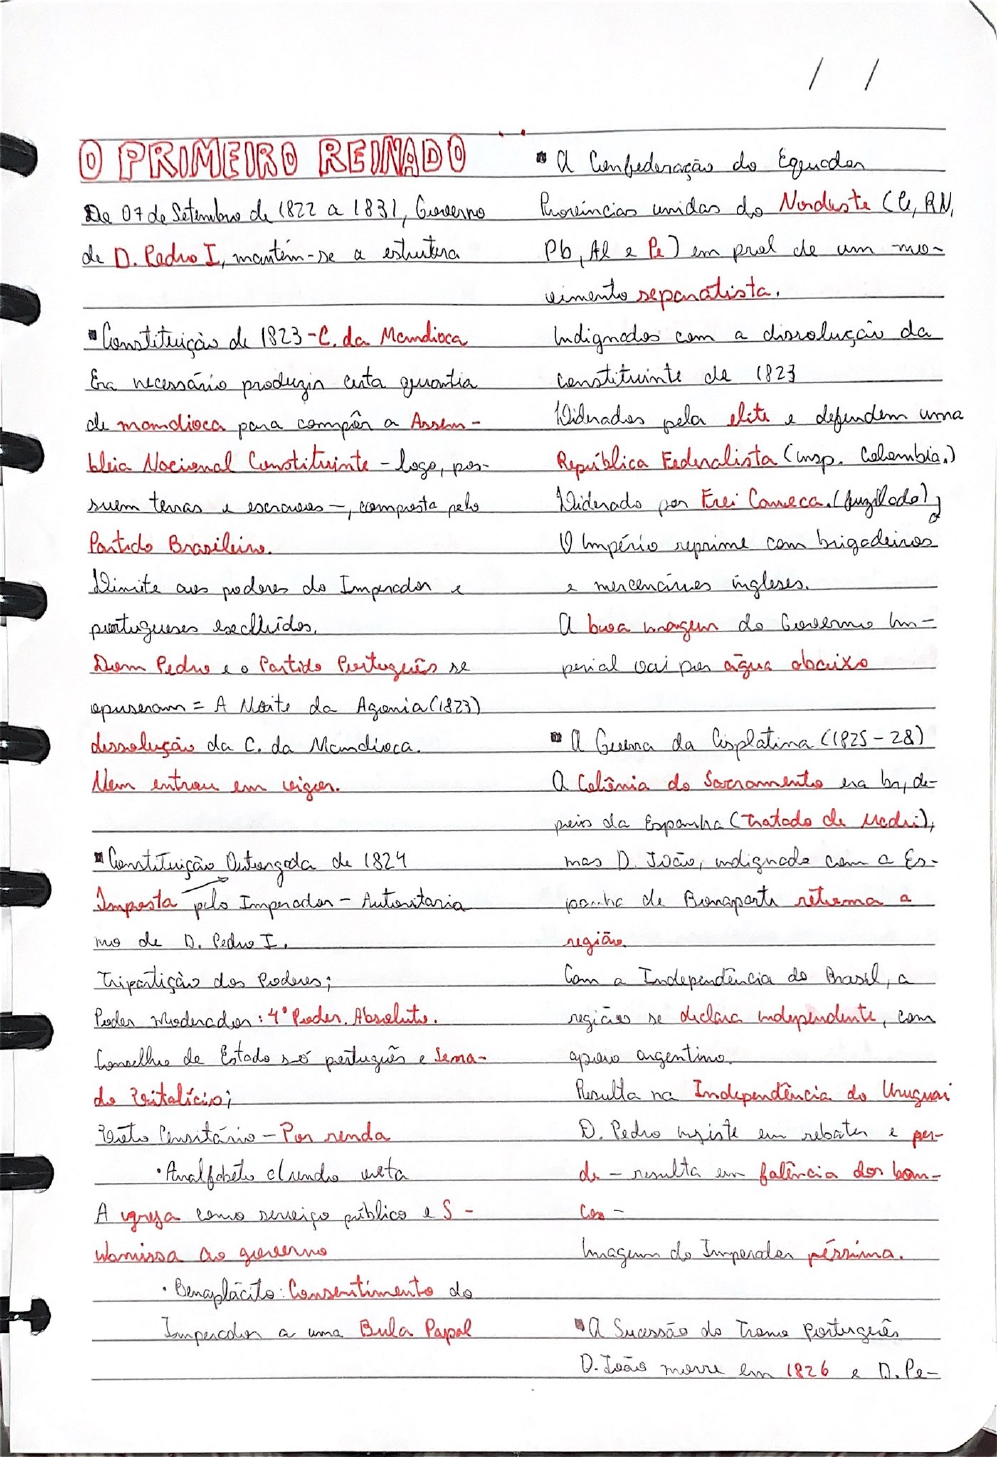 / /
O PRIMEIRO REINADO
De 07 de Setembro de 1822 a 1831, Governo
de D. Pedro I, mantém-se a estrutura
Constituição de 1823 - C. da Mandioca
Era necessário produzir certa quantia
de mandioca para compôr a Assem-
bleia Nacional Constituinte - logo, pos-
suem terras e escravos -, composta pelo
Partido Brasileiro.
Limite aos poderes do Imperador e
portugueses excluídos.
Dom Pedro e o Partido Português se
opuseram = A Noite da Agonia (1823)
dissolução da C. da Mandioca.
Nem entrou em vigor.
Constituição Outorgada de 1824
Imposta pelo Imperador - Autoritaris
mo de D. Pedro I.
Tripartição dos Poderes;
Poder Moderador: 4º Poder. Absoluto.
Conselho de Estado só português e Sena-
do Vitalício;
Voto Censitário - Por renda
• Analfabeto c/ renda vota
A igreja como serviço público e S-
ubmissa ao governo
• Beneplácito: Consentimento do
Imperador a uma Bula Papal
A Confederação do Equador
Províncias unidas do Nordeste (Ce, RN,
Pb, Al e Pe) em prol de um mo-
vimento separatista.
Indignados com a dissolução da
constituinte de 1823
Liderados pela elite e defendem uma
República Federalista (insp. Colombia.)
Liderado por Frei Caneca. (fuzilado)
O Império reprime com brigadeiros
e mercenários ingleses.
A boa imagem do Governo Im-
perial vai por água abaixo
A Guerra da Cisplatina (1825-28)
A Colônia do Sacramento era br, de-
pois da Espanha (Tratado de Madri),
mas D. João, indignado com a Es-
panha de Bonaparte retoma a
região.
Com a Independência do Brasil, a
região se declara independente, com
apoio argentino.
Resulta na Independência do Uruguai
D. Pedro insiste em rebater e per-
de - resulta em falência dos ban-
cos -
Imagem do Imperador péssima.
A Sucessão do Trono Português
D. João morre em 1826 e D. Pe-